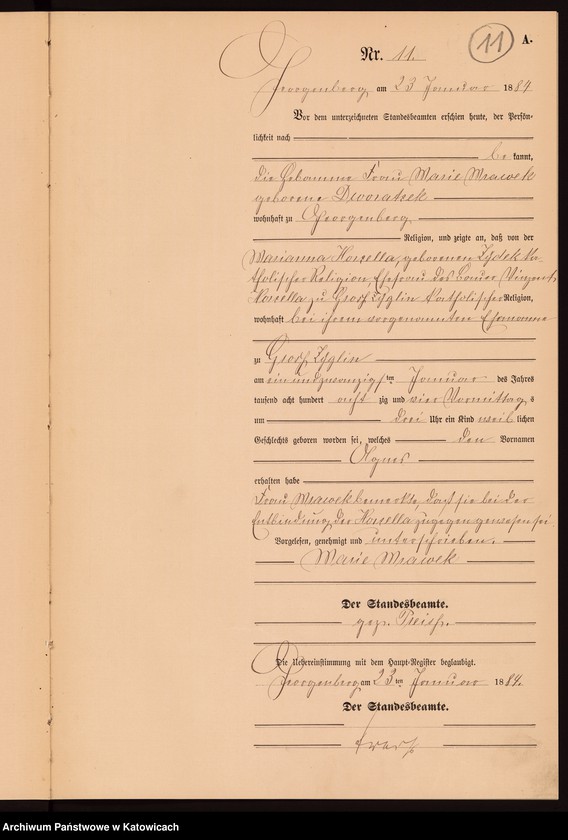 11
A.
Nr. 11.
Georgenberg am 23 Januar 1884
Vor dem unterzeichneten Standesbeamten erschien heute, der Persön-
lichkeit nach
be kannt,
die Hebamme Frau Marie Mrawek
geborene Dworatzek
wohnhaft zu Georgenberg
Religion, und zeigte an, daß von der
Marianna Korzella, geborenen Zydek ka-
tholischer Religion Ehefrau des Bauer Vinzent
Korzella zu Groß Zyglin katholischer Religion,
wohnhaft bei ihrem vorgenannten Ehemanne
zu Groß Zyglin
am ein und zwanzigsten Januar des Jahres
tausend acht hundert acht zig und vier Vormittag s
um drei Uhr ein Kind weib lichen
Geschlechts geboren worden sei, welches den Vornamen
Agnes
erhalten habe
Frau Mrawek bemerkte, daß sie bei der
Entbindung der Korzella zugegen gewesen sei
Vorgelesen, genehmigt und unterschrieben.
Marie Mrawek
Der Standesbeamte.
gez.
Die Uebereinstimmung mit dem Haupt-Register beglaubigt.
Georgenberg am 23 ten Januar 1884.
Der Standesbeamte.
Archiwum Państwowe w Katowicach